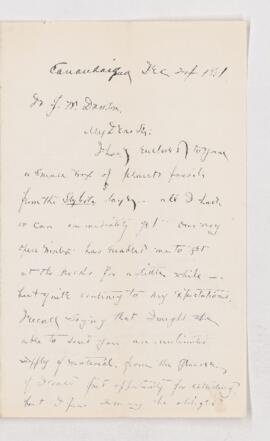 Canandaigua Dec 24 1881
Dr J. W. Dawson
My Dear Sir:
I have enclosed to you
a small box of plants fossils
from the Styliola layer – all I had
or can immediately get. Our very
open winter has enabled me to get
at the rocks for a little while –
but quite contrary to my expectations.
I recall saying that I might be
able to send you an
supply of material, from the
of first opportunity for collecting,
but I fear I may be obliged